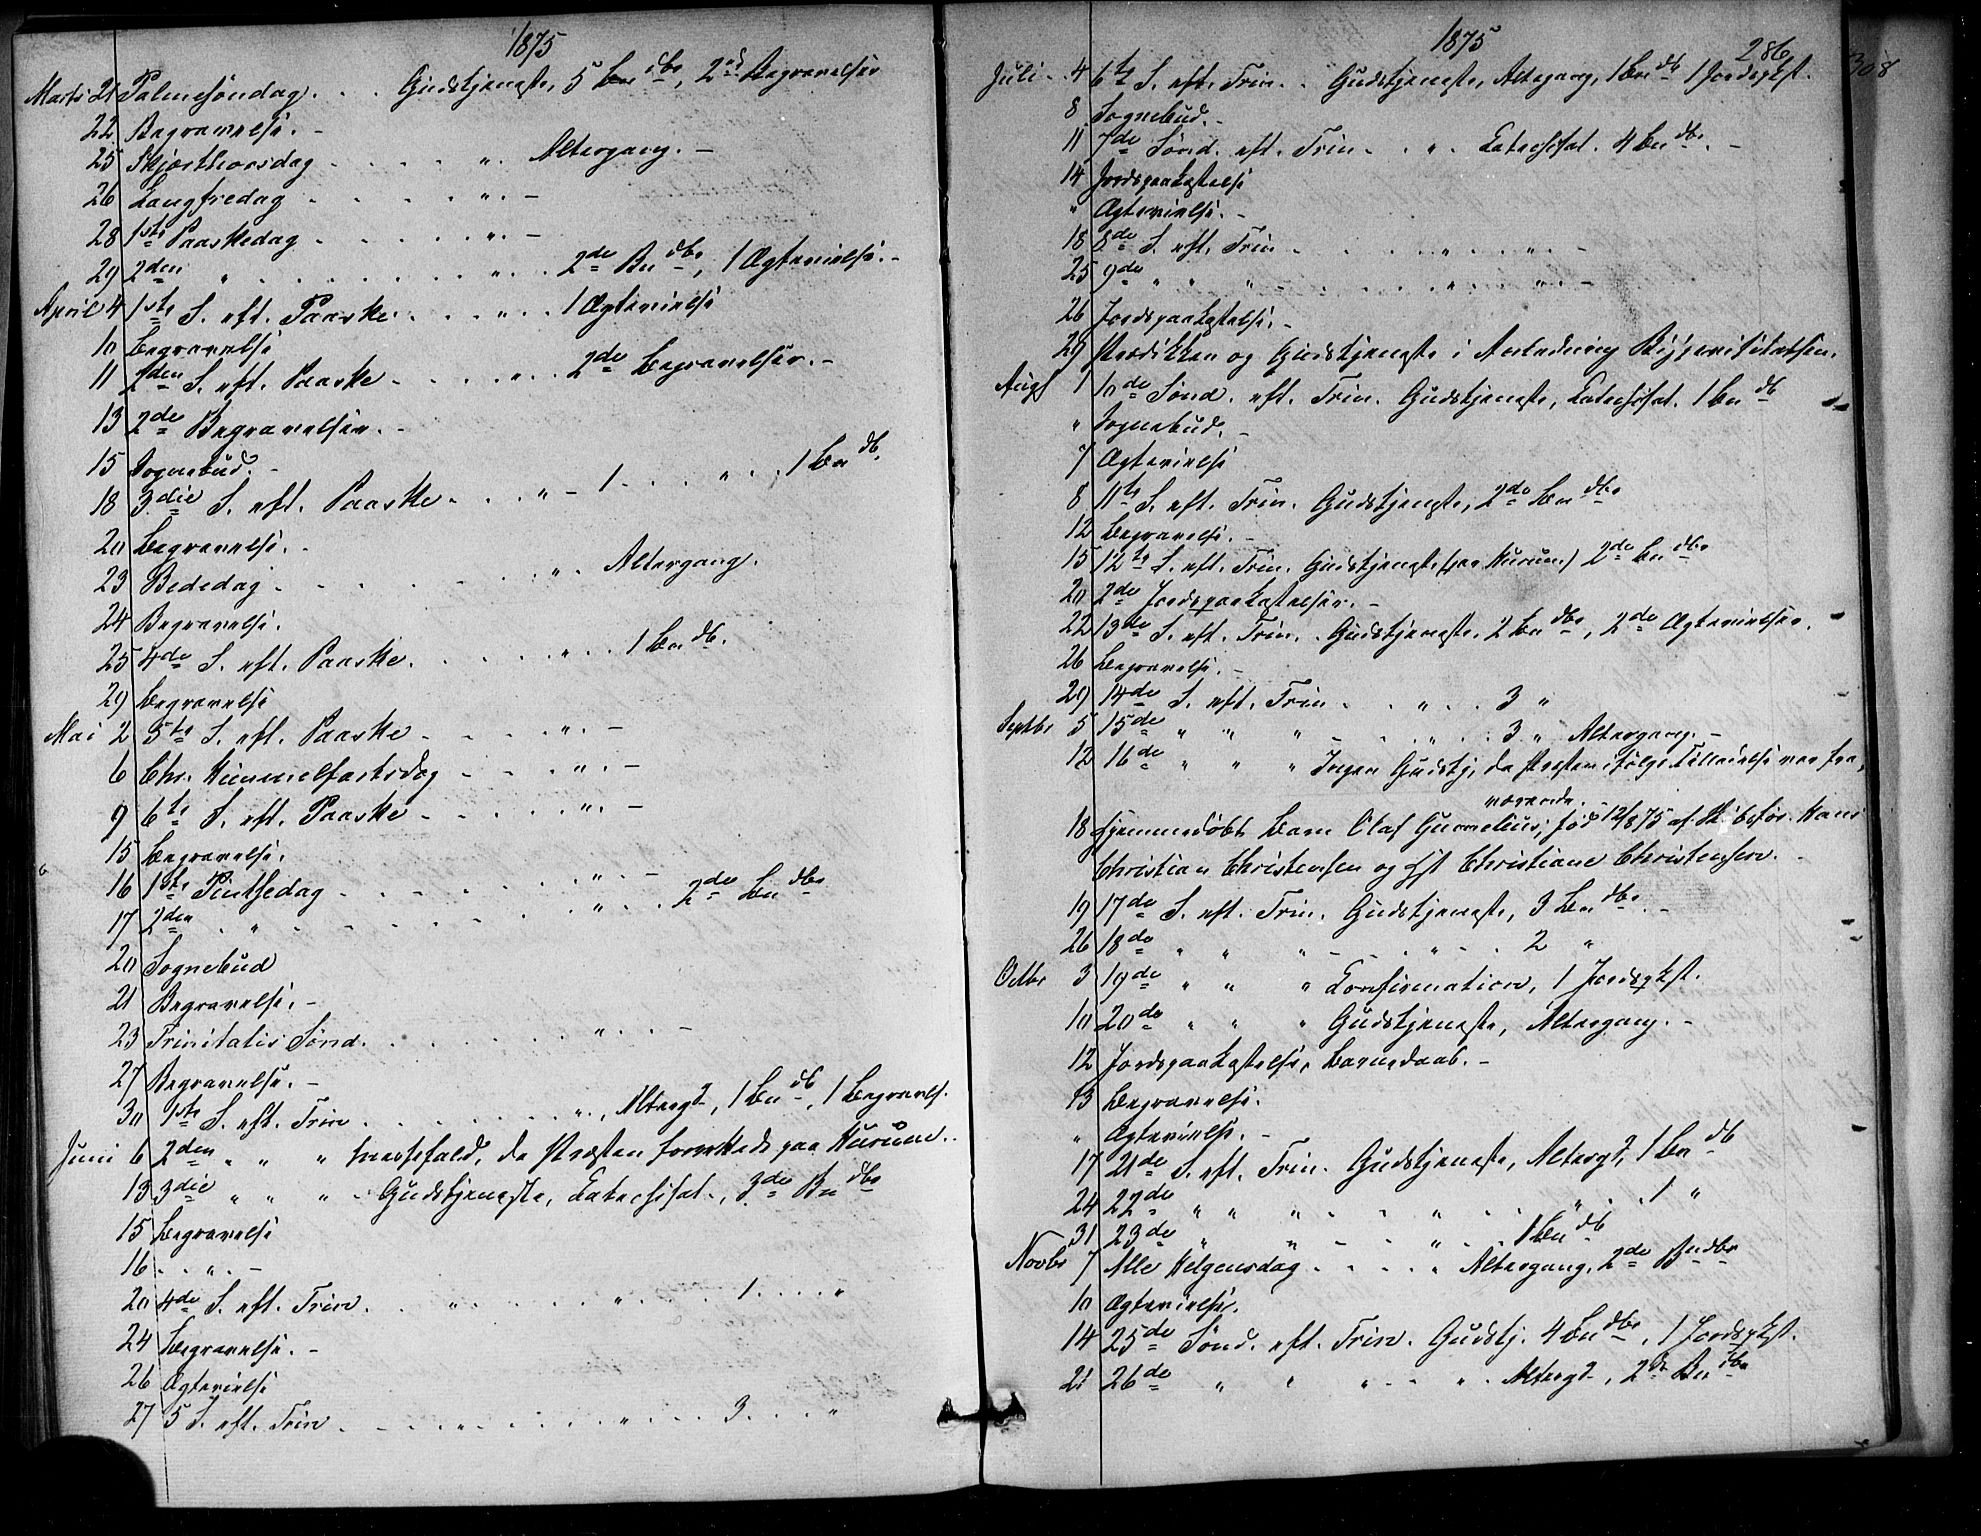 1875
Marts 21 Palmesøndag . . . Gudstjeneste, 5 Bn dbe, 2de Begravelser
22 Begravelse. -
25 Skjærthorsdag . . . . . " Altergang. -
26 Langfredag . . . . . " . -
28 1ste Paaskedag . . . . . " . -
29 2den " . . . . . " . . . 2de Bn dbe, 1 Ægtevielse. -
April 4 1ste S. eft. Paaske . . . " . . 1 Ægtevielse
10 Begravelse
11 2den S. eft. Paaske . . . . " . . 2de Begravelser. -
13 2de Begravelser. -
15 Sognebud. -
18 3die S. eft. Paaske . . . " - 1 . . . " . . 1 Bn db.
20 Begravelse. -
23 Bededag . . . . . . " . Altergang.
24 Begravelse.
25 4de S. eft. Paaske. . . . . " . . 1 Bn db.
29 Begravelse
Mai 2 5te S. eft. Paaske . . . . " . -
6 Chr. Himmelfartsdag . . . " . -
9 6te S. eft. Paaske . . . . . " . -
15 Begravelse.
16 1ste Pintsedag . . . . . . " . . -
17 2den . " . . . . . . " . . 2de Bn dbe
20 Sognebud
21 Begravelse. -
23 Trinitatis Sønd. . . . . . " . . -
27 Begravelse. -
30 1ste S. eft. Trin . . . . . . " . , Altergg, 1 Bn db, 1 Begravels.
Juni 6 2den " " " Messefald, da Præsten forrettede paa Hurum.
13 3die " " " - Gudstjeneste, Catechisat., 3de Bn dbe
15 Begravelse
16 . . " . -
20 4de S. eft. Trin. . . " . . . . " . . . 1 . . . "
24 Begravelse. -
26 Ægtevielse
27 5 S. eft. Trin . . . . " . . . . " . . . 3 . . . "
1875
286
308
Juli 4 6te S. eft. Trin. . Gudstjeneste, Altergang, 1 Bn db 1 Jordspkst.
8 Sognebud. -
11 7de Sønd. eft. Trin. . " . Catechisat. 4 Bn dbe. -
14 Jordspaakastelse
" Ægtevielse. -
18 8de S. eft. Trin . . . . " . . " . -
25 9de " " " - . . . . " . . " . -
26 Jordspaakastelse. -
29 Prædiken og Gudstjeneste i Anledning Bispevisitatsen.
Augs 1 10de Sønd. eft. Trin. Gudstjeneste, Catechisat. 1 Bn db
" Sognebud. -
7 Ægtevielse
8 11te S. eft. Trin. Gudstjeneste, 2de Bn dbe
12 Begravelse. -
15 12te S. eft. Trin. Gudstjeneste (paa Hurum) 2de Bn dbe
20 2de Jordspaakastelser. -
22 13de S. eft. Trin. . Gudstjeneste. 2 Bn dbe, 2de Ægtevielser.
26 Begravelse. -
29 14de S. eft. Trin . . " . . 3 "
Septbr 5 15de " " " - . . " . . 3 " Altergang. -
12 16de " " " Ingen Gudstj. da Præsten ifølge Tilladelse var fra-
værende.
18 Hjemmedøbt Barn Olaf Gunnelius, fød 12/8 75 af Skibsfør. Hans
Christian Christensen og Hst Christiane Christensen. -
19 17de S. eft. Trin. Gudstjeneste, 3 Bn dbe. -
26 18de " " " - . . " . . 2 "
Octbr 3 19de " " " Confirmation, 1 Jordspkst.
10 20de " " " Gudstjeneste, Altergang. -
12 Jordspaakastelse, Barnedaab. -
13 Begravelse.
" Ægtevielse. -
17 21de S. eft. Trin. Gudstjeneste, Altergg, 1 Bn db
24 22de " " " . . " . . " . . 1 "
31 23de " " . . " . . 1 Bn db
Novbr 7 Alle Helgensdag . . . . " Altergang, 2de Bn dbe
10 Ægtevielse.
14 25de Sønd. eft. Trin. Gudstj. 4 Bn dbe, 1 Jordspkst.
21 26de " " " . . " . Altergg, 2de Bn dbe